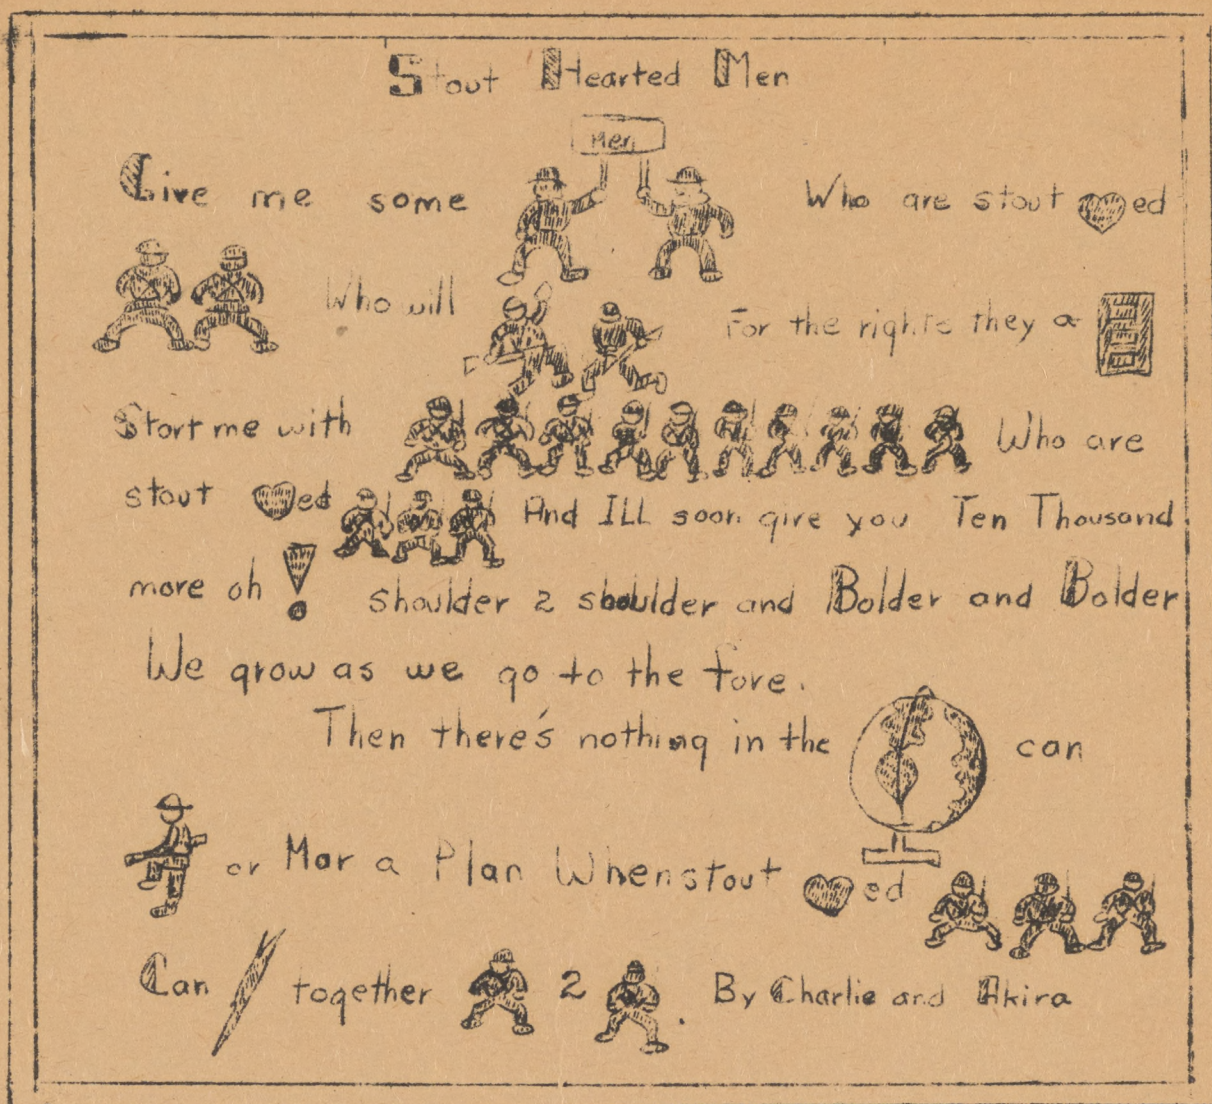 Stout Hearted Men
Men
Give me some Who are stout ed
Who will For the rights they a
Start me with Who are
stout ed And ILL soon give you Ten Thousand
more oh ! shoulder 2 shoulder and Bolder and Bolder
We grow as we go to the fore.
Then there's nothing in the can
or Mar a Plan When stout ed
Can together 2 . By Charlie and Akira